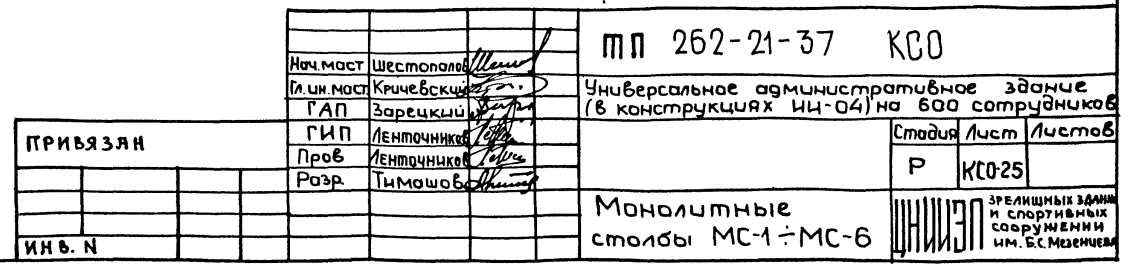 ТП 262-21-37 КСО
Нач.маст Шестопалов
Гл.ин.маст Кричевский
ГАП Зарецкий
ГИП Ленточников
Пров Ленточников
Разр. Тимашова
Универсальное административное здание
(в конструкциях ИИ-04) на 600 сотрудников
Стадия Лист Листов
Р КСО-25
Монолитные
столбы МС-1÷МС-6
ЦНИИЭП
ЗРЕЛИЩНЫХ ЗДАНИЙ
И СПОРТИВНЫХ
СООРУЖЕНИЙ
ИМ. Б.С. МЕЗЕНЦЕВА
ПРИВЯЗАН
ИНВ. N